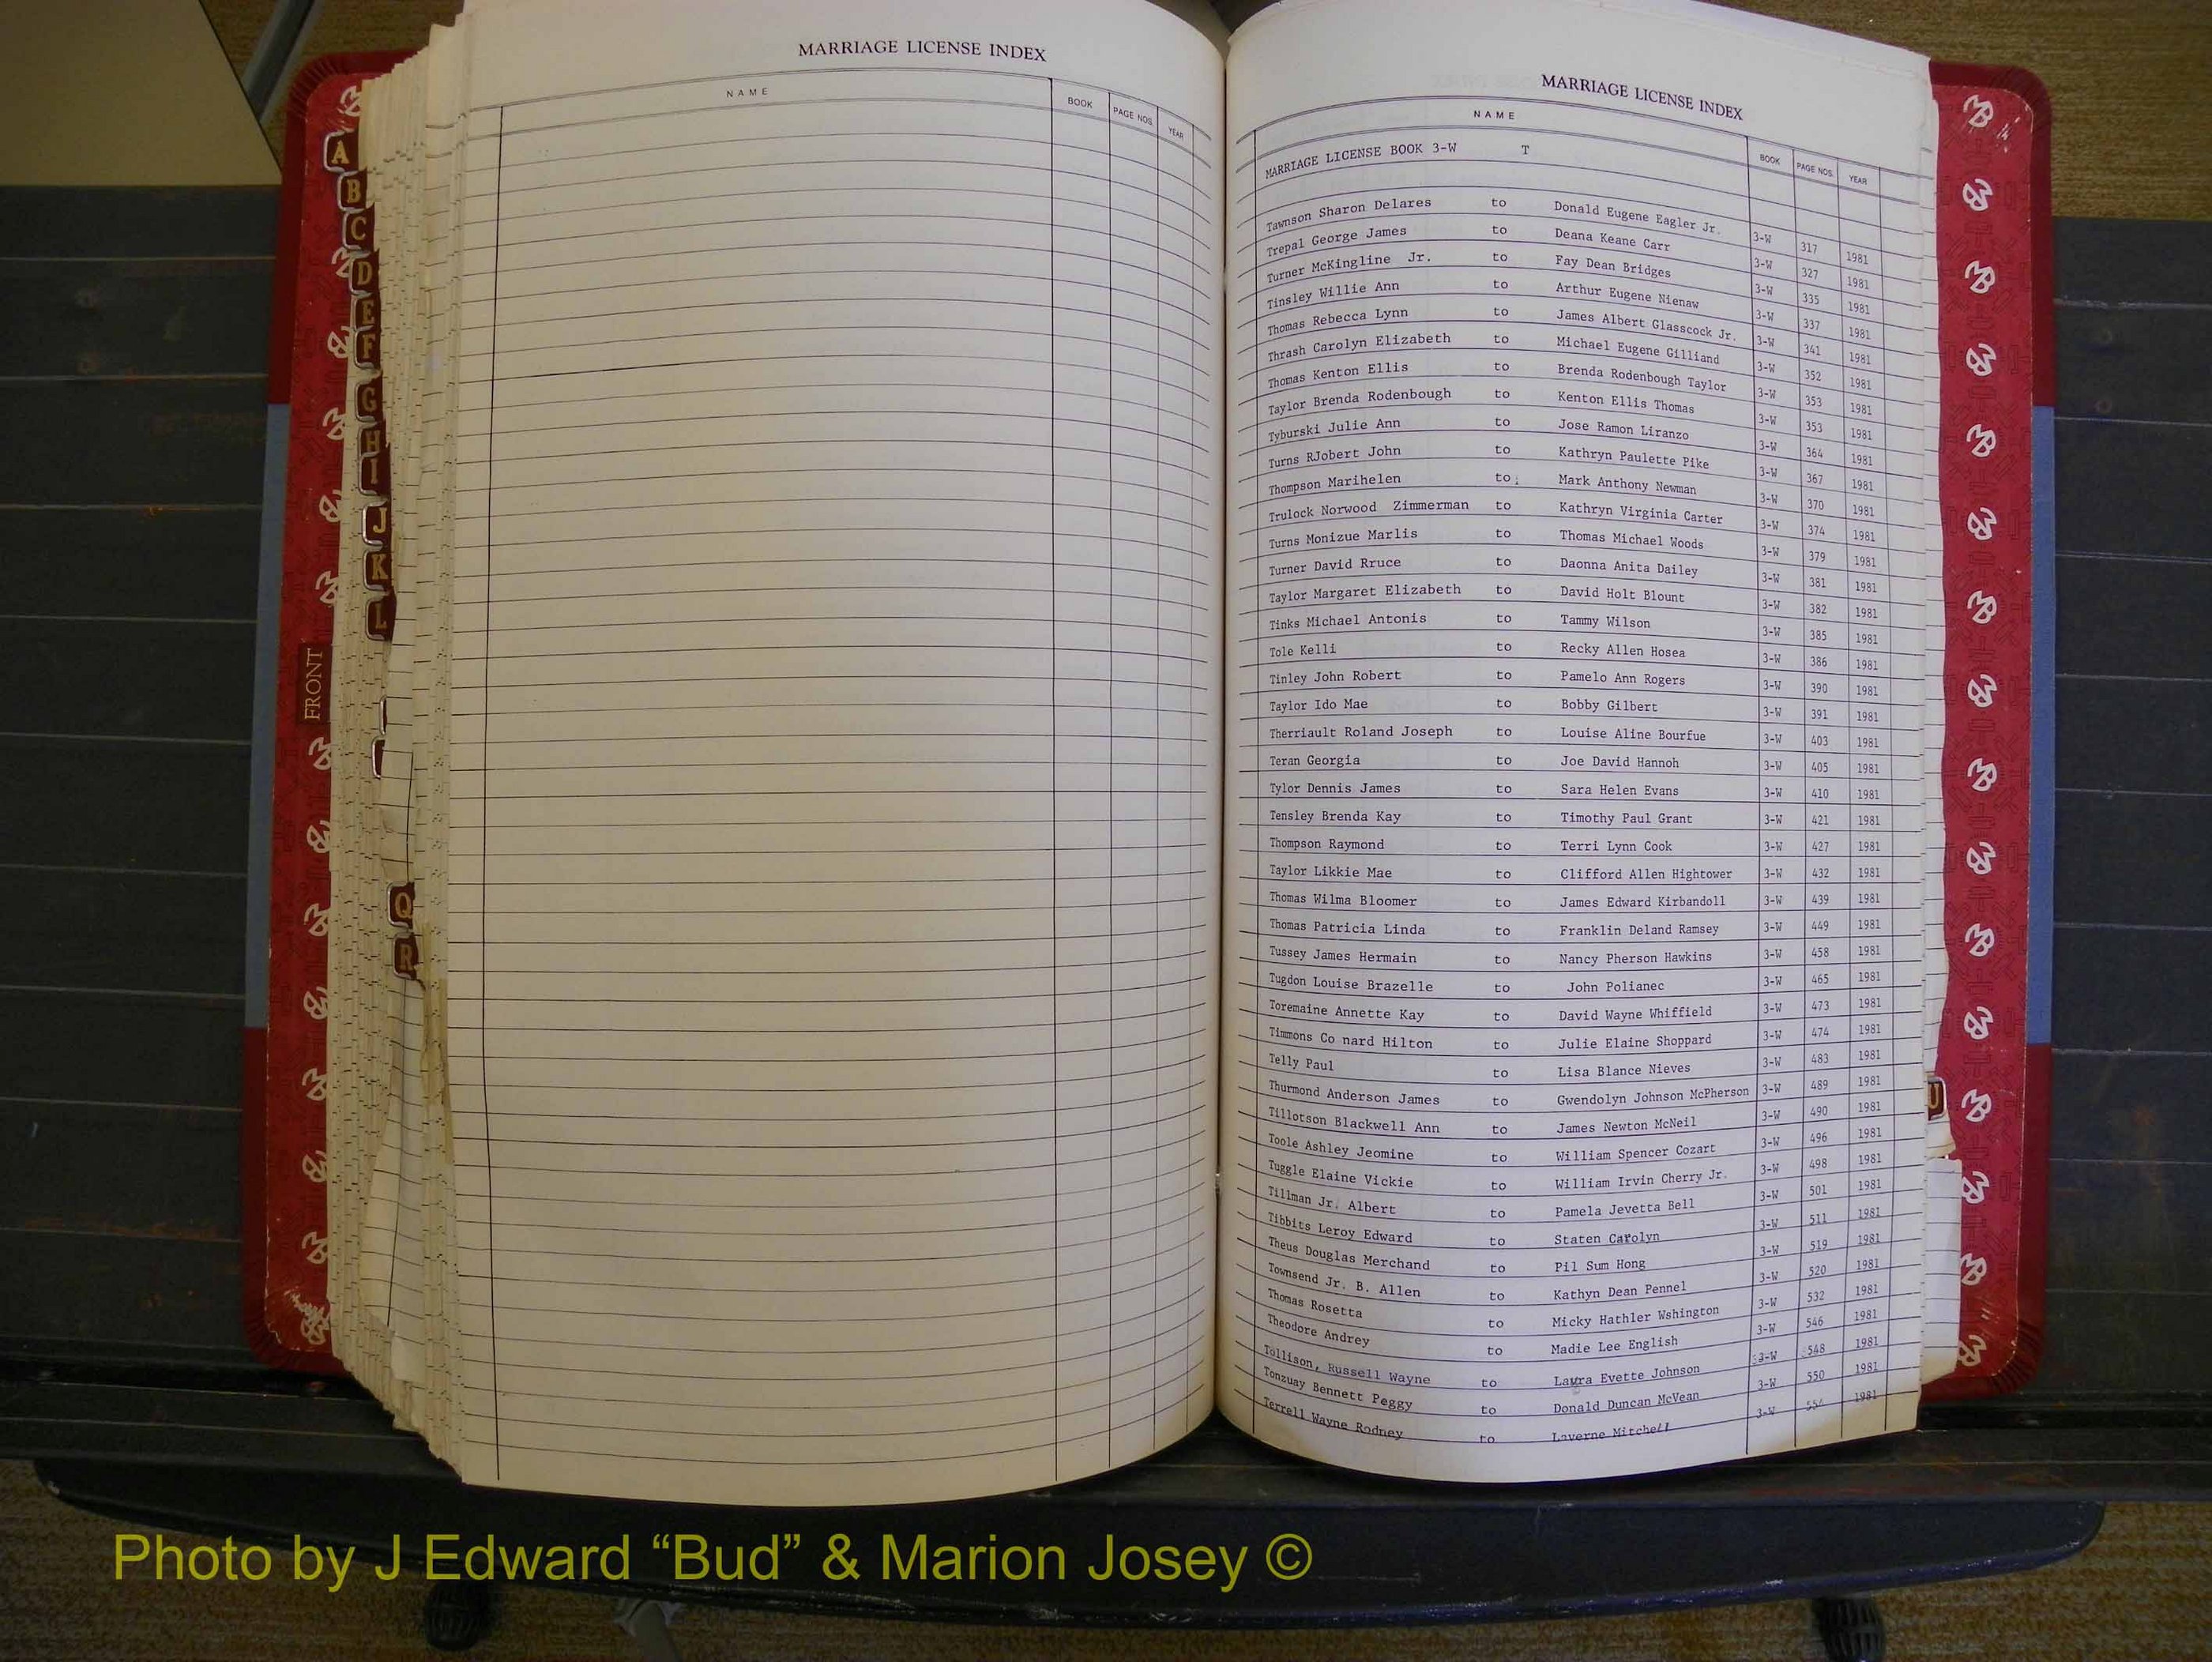 A
B
C
D
E
F
G
H
I
J
K
L
FRONT
Q
R
MARRIAGE LICENSE INDEX
NAME BOOK PAGE NOS. YEAR
MARRIAGE LICENSE INDEX
NAME BOOK PAGE NOS. YEAR
MARRIAGE LICENSE BOOK 3-W T
Tawnson Sharon Delares to Donald Eugene Eagler Jr. 3-W 317 1981
Trepal George James to Deana Keane Carr 3-W 327 1981
Turner McKingline Jr. to Fay Dean Bridges 3-W 335 1981
Tinsley Willie Ann to Arthur Eugene Nienaw 3-W 337 1981
Thomas Rebecca Lynn to James Albert Glasscock Jr. 3-W 341 1981
Thrash Carolyn Elizabeth to Michael Eugene Gilliand 3-W 352 1981
Thomas Kenton Ellis to Brenda Rodenbough Taylor 3-W 353 1981
Taylor Brenda Rodenbough to Kenton Ellis Thomas 3-W 353 1981
Tyburski Julie Ann to Jose Ramon Liranzo 3-W 364 1981
Turns RJobert John to Kathryn Paulette Pike 3-W 367 1981
Thompson Marihelen to Mark Anthony Newman 3-W 370 1981
Trulock Norwood Zimmerman to Kathryn Virginia Carter 3-W 374 1981
Turns Monizue Marlis to Thomas Michael Woods 3-W 379 1981
Turner David Rruce to Daonna Anita Dailey 3-W 381 1981
Taylor Margaret Elizabeth to David Holt Blount 3-W 382 1981
Tinks Michael Antonis to Tammy Wilson 3-W 385 1981
Tole Kelli to Recky Allen Hosea 3-W 386 1981
Tinley John Robert to Pamelo Ann Rogers 3-W 390 1981
Taylor Ido Mae to Bobby Gilbert 3-W 391 1981
Therriault Roland Joseph to Louise Aline Bourfue 3-W 403 1981
Teran Georgia to Joe David Hannoh 3-W 405 1981
Tylor Dennis James to Sara Helen Evans 3-W 410 1981
Tensley Brenda Kay to Timothy Paul Grant 3-W 421 1981
Thompson Raymond to Terri Lynn Cook 3-W 427 1981
Taylor Likkie Mae to Clifford Allen Hightower 3-W 432 1981
Thomas Wilma Bloomer to James Edward Kirbandoll 3-W 439 1981
Thomas Patricia Linda to Franklin Deland Ramsey 3-W 449 1981
Tussey James Hermain to Nancy Pherson Hawkins 3-W 458 1981
Tugdon Louise Brazelle to John Polianec 3-W 465 1981
Toremaine Annette Kay to David Wayne Whiffield 3-W 473 1981
Timmons Co nard Hilton to Julie Elaine Shoppard 3-W 474 1981
Telly Paul to Lisa Blance Nieves 3-W 483 1981
Thurmond Anderson James to Gwendolyn Johnson McPherson 3-W 489 1981
Tillotson Blackwell Ann to James Newton McNeil 3-W 490 1981
Toole Ashley Jeomine to William Spencer Cozart 3-W 496 1981
Tuggle Elaine Vickie to William Irvin Cherry Jr. 3-W 498 1981
Tillman Jr. Albert to Pamela Jevetta Bell 3-W 501 1981
Tibbits Leroy Edward to Staten Carolyn 3-W 511 1981
Theus Douglas Merchand to Pil Sum Hong 3-W 519 1981
Townsend Jr. B. Allen to Kathyn Dean Pennel 3-W 520 1981
Thomas Rosetta to Micky Hathler Wshington 3-W 532 1981
Theodore Andrey to Madie Lee English 3-W 546 1981
Tollison, Russell Wayne to Laura Evette Johnson 3-W 548 1981
Tonzuay Bennett Peggy to Donald Duncan McVean 3-W 550 1981
Terrell Wayne Rodney to Laverne Mitchell 3-W 554 1981
U
Photo by J Edward “Bud” & Marion Josey ©